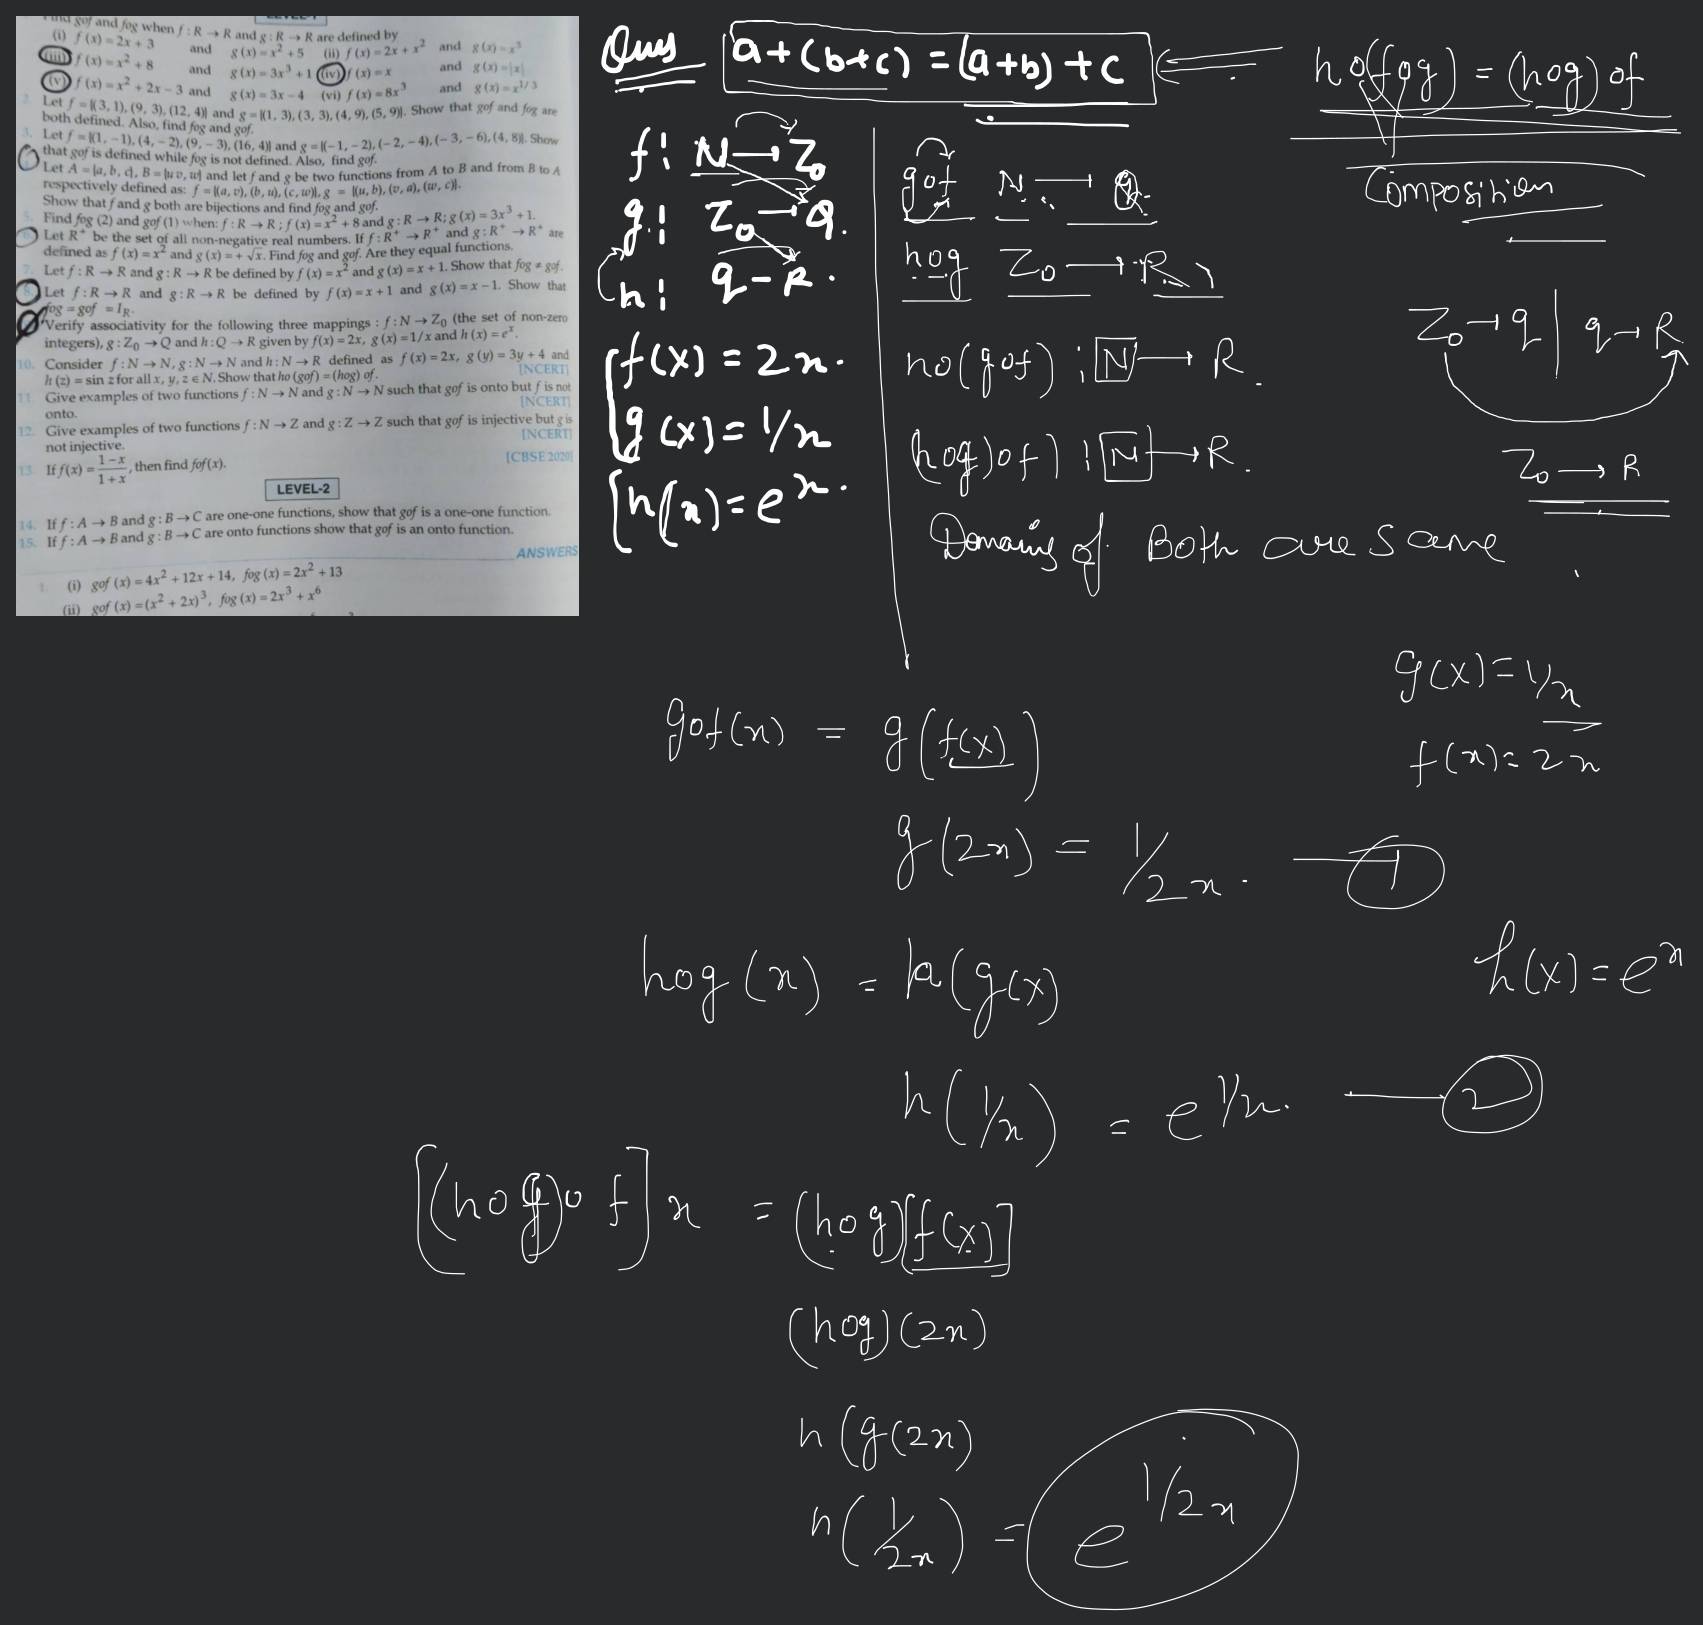 LEVEL-1
Find gof and fog when f : R → R and g : R → R are defined by
(i) f (x) = 2x + 3 and g (x) = x² + 5 (ii) f (x) = 2x + x² and g (x) = x³
(iii) f (x) = x² + 8 and g (x) = 3x³ + 1 (iv) f (x) = x and g (x) = |x|
(v) f (x) = x² + 2x − 3 and g (x) = 3x − 4 (vi) f (x) = 8x³ and g (x) = x^1/3
2. Let f = {(3, 1), (9, 3), (12, 4)} and g = {(1, 3), (3, 3), (4, 9), (5, 9)}. Show that gof and fog are
both defined. Also, find fog and gof.
3. Let f = {(1, −1), (4, −2), (9, −3), (16, 4)} and g = {(−1, −2), (−2, −4), (−3, −6), (4, 8)}. Show
that gof is defined while fog is not defined. Also, find gof.
Let A = {a, b, c}, B = {u v, w} and let f and g be two functions from A to B and from B to A
respectively defined as: f = {(a, v), (b, u), (c, w)}, g = {(u, b), (v, a), (w, c)}.
Show that f and g both are bijections and find fog and gof.
5. Find fog (2) and gof (1) when: f : R → R ; f (x) = x² + 8 and g : R → R; g (x) = 3x³ + 1.
Let R⁺ be the set of all non-negative real numbers. If f : R⁺ → R⁺ and g : R⁺ → R⁺ are
defined as f (x) = x² and g (x) = + √x. Find fog and gof. Are they equal functions.
7. Let f : R → R and g : R → R be defined by f (x) = x² and g (x) = x + 1. Show that fog ≠ gof.
8. Let f : R → R and g : R → R be defined by f (x) = x + 1 and g (x) = x − 1. Show that
fog = gof = I_R.
Verify associativity for the following three mappings : f : N → Z₀ (the set of non-zero
integers), g : Z₀ → Q and h : Q → R given by f (x) = 2x, g (x) = 1/x and h (x) = eˣ.
10. Consider f : N → N, g : N → N and h : N → R defined as f (x) = 2x, g (y) = 3y + 4 and
h (z) = sin z for all x, y, z ∈ N. Show that ho (gof) = (hog) of. [NCERT]
11. Give examples of two functions f : N → N and g : N → N such that gof is onto but f is not
onto. [NCERT]
12. Give examples of two functions f : N → Z and g : Z → Z such that gof is injective but g is
not injective. [NCERT]
13. If f(x) = 1−x/1+x, then find fof(x). [CBSE 2020]
LEVEL-2
14. If f : A → B and g : B → C are one-one functions, show that gof is a one-one function.
15. If f : A → B and g : B → C are onto functions show that gof is an onto function.
ANSWERS
1. (i) gof (x) = 4x² + 12x + 14, fog (x) = 2x² + 13
(ii) gof (x) = (x² + 2x)³, fog (x) = 2x³ + x⁶
Ques a+(b+c) = (a+b)+c
ho(fog) = (hog) of
Composition
f: N → Z₀
g: Z₀ → Q.
h: q − R.
f(x) = 2x.
g(x) = 1/x
h(x) = eˣ.
gof N → Q.
hog Z₀ → R
ho(gof) ; N → R.
(hog)of) : N → R.
Domains of Both are same
Z₀ → q | q → R
Z₀ → R
g(x) = 1/x
f(x) = 2x
gof(x) = g(f(x))
g(2x) = 1/2x. — 1
hog (x) = h(g(x)
h(x) = eˣ
h(1/x) = e^1/x. — 2
[(hog)o f] x = (hog)[f(x)]
(hog)(2x)
h(g(2x)
h(1/2x) = e^1/2x